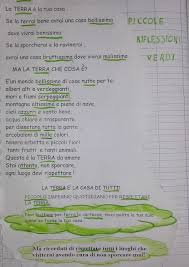 La TERRA è la tua casa
Se la terra bene avrai una casa bellissima
dove vivrai benissimo
Se la sporcherai e la rovinerai
avrai una casa bruttissima dove vivrai malissimo
MA LA TERRA CHE COSA È?
È un mondo bellissimo di cose tutte per te:
alberi alti e verdeggianti,
mari e fiumi serpeggianti,
montagne altissime e piene di neve
cieli azzurri e vento lieve
acqua chiara e trasparente,
per dissetare tutta la gente
arcobaleni di mille colori,
tesori infiniti, pesci e fiori
tanti frutti e tanti animali.
Questa è la TERRA da amare
Stai attento, non sporcare,
ogni luogo devi rispettare!
PICCOLE
RIFLESSIONI
VERDI
LA TERRA È LA CASA DI TUTTI!
PICCOLO IMPEGNO QUOTIDIANO PER RISPETTARE
LA TERRA
Ma ricordati di rispettare tutti i luoghi che
visiterai avendo cura di non sporcare mai!